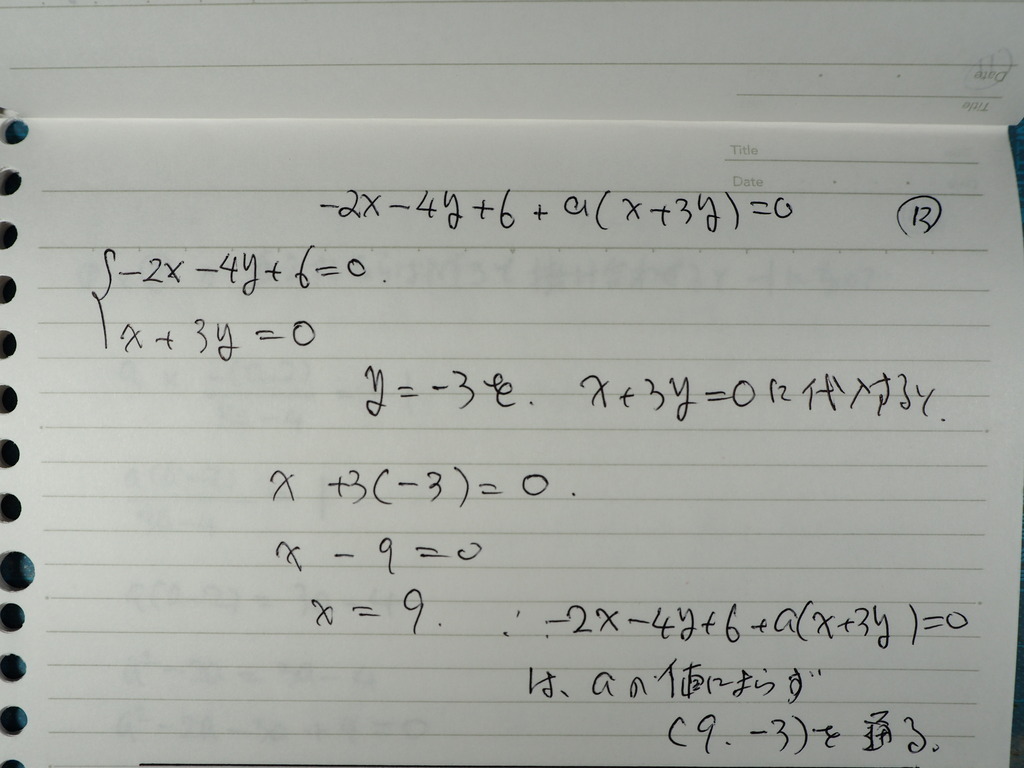 Date
Title
Title
Date
-2x-4y+6+a(x+3y)=0 ⑬
{-2x-4y+6=0.
x+3y=0
y=-3を. x+3y=0に代入すると.
x+3(-3)=0.
x-9=0
x=9. ∴ -2x-4y+6+a(x+3y)=0
は、aの値によらず
(9.-3)を通る.